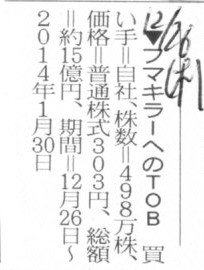 12/26(木)
▼フマキラーへのTOB 買
い手=自社、株数=498万株、
価格=普通株式303円、総額
=約15億円、期間=12月26日~
2014年1月30日